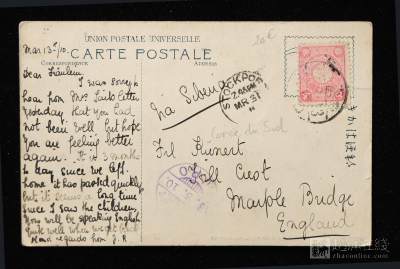 UNION POSTALE UNIVERSELLE
CARTE POSTALE
CORRESPONDENCE
ADDRESS
Mar 13th/10.
Dear Fräulein
I was sorry to
hear from Mrs
letter
yesterday that you had
not been well but hope
you are feeling better
again. It is 3 months
to day since we left
home it has passed quickly
but it seems a long time
since I saw the children,
You will be speaking English
quite well when we get back
Kind regards from J. R.
Via Siberia
STOCKPORT
MR 31
20€
Corée du Sud
Frl Kienert
Hill Crest
Marple Bridge
England
きかは便郵
zhaoonline.com